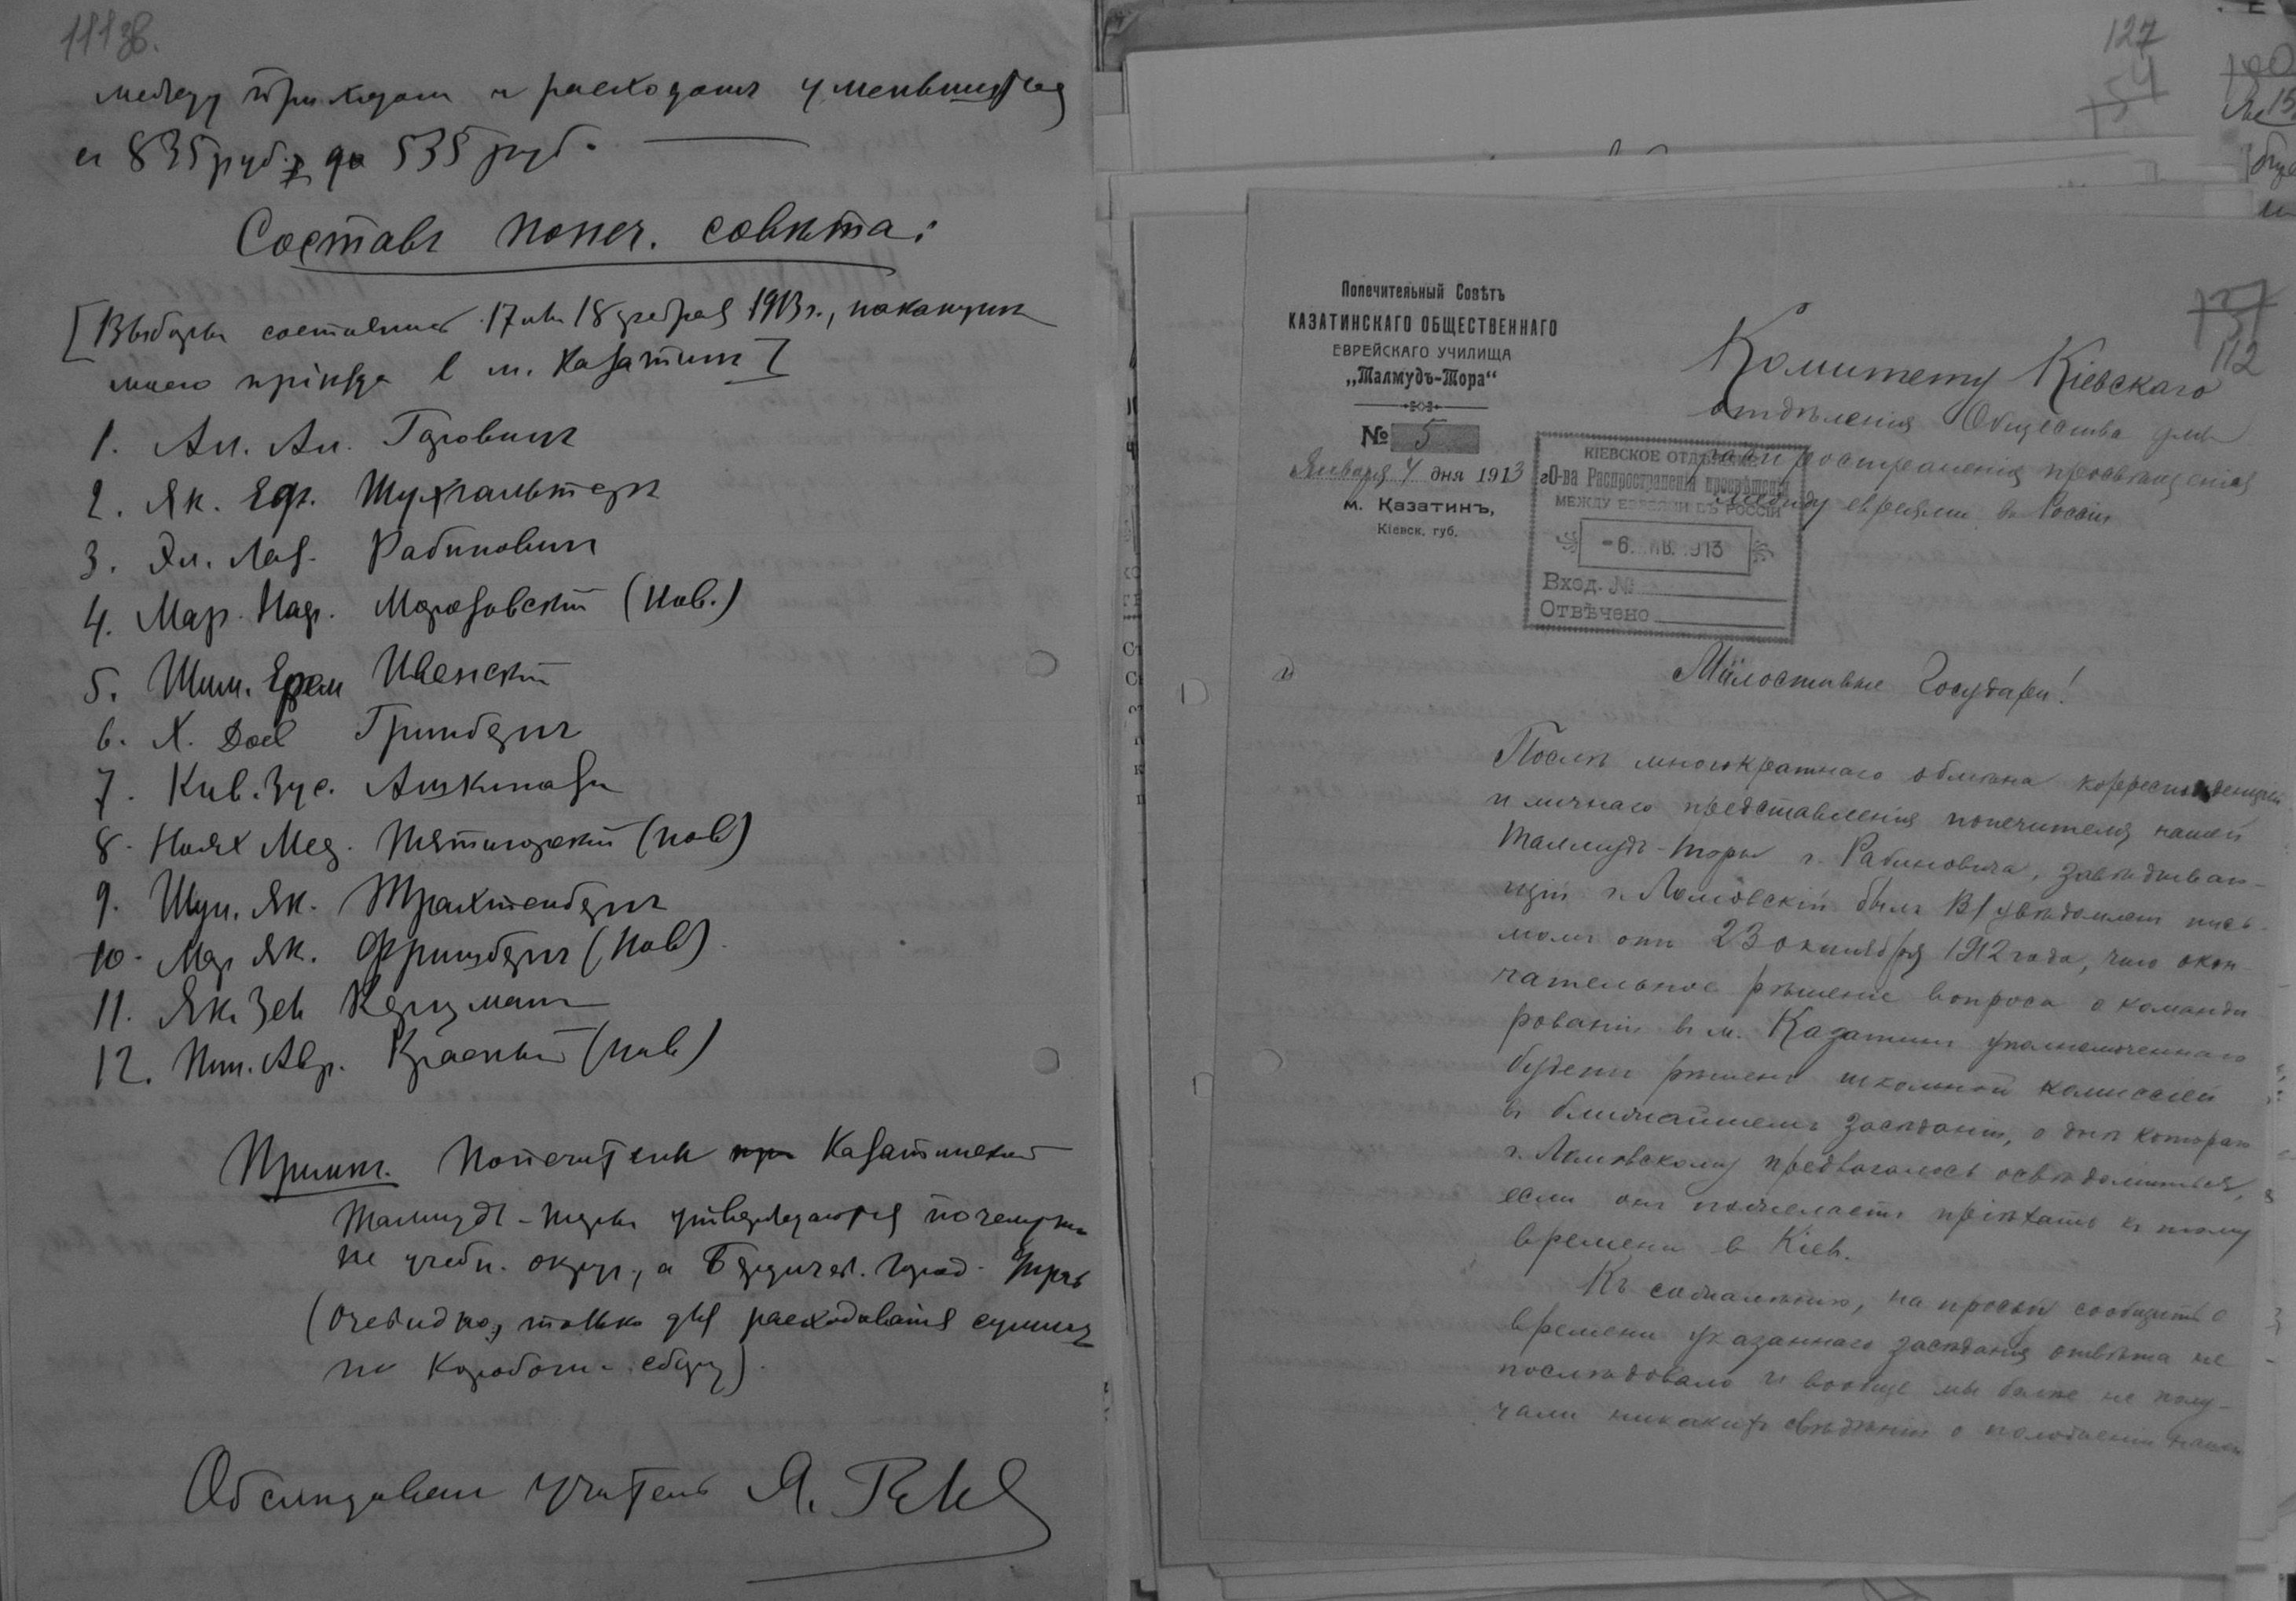 111 об.
между приходом и расходомъ уменьшится
съ 835 руб. до 535 руб.
Составъ попеч. совѣта:
[Выборы состоялись 17 или 18 февраля 1913 г., наканунѣ
моего пріѣзда в м. Казатинъ]
1. Ал. Ал. Горовицъ
2. Як. Ефр. Шухгальтеръ
3. Эл. Лаз. Рабиновичъ
4. Мар. Морозовскій (нов.)
5. Шим. Ивенскій
6. Х. Гринбергъ
7. Кив. Зус. Ашкинази
8. Ноях Мед. Пятигорскій (нов)
9. Шун. Як. Трахтенбергъ
10. Мор Як. (нов)
11. Як. Зел Керцманъ
12. Пин. Авр. Красный (нов)
Примѣч. Попечители Казатинской
Талмудъ-Торы утверждаются почему-то
не учебн. округ., а Бердичев. Город. Упр.
(очевидно, только для расходованія суммъ
по Коробочн. сбору).
Обслѣдовалъ учитель Я.
127
54
Попечительный Совѣтъ
КАЗАТИНСКАГО ОБЩЕСТВЕННАГО
ЕВРЕЙСКАГО УЧИЛИЩА
„Талмудъ-Тора“
№ 5
Января 4 дня 1913
м. Казатинъ,
Кіевск. губ.
131
112
Комитету Кіевскаго
отдѣленія Общества для
распространенія просвѣщенія
между евреями въ Россіи
КІЕВСКОЕ ОТДѢЛЕНІЕ
О-ва Распространенія просвѣщенія
МЕЖДУ ЕВРЕЯМИ ВЪ РОССІИ
-6. ЯНВ. 1913
Вход. №
Отвѣчено
Милостивые Государи!
Послѣ многократнаго обмѣна корреспонденціей
и личнаго представленія попечителя нашей
Талмудъ-Торы г. Рабиновича, завѣдываю-
щій г. Ломовскій былъ Вами увѣдомленъ пись-
момъ отъ 23 октября 1912 года, что окон-
чательное рѣшеніе вопроса о команди-
рованіи въ м. Казатинъ уполномоченнаго
будетъ рѣшено школьной комиссіей
въ ближайшемъ засѣданіи, о днѣ котораго
г. Ломовскому предлагалось освѣдомиться,
если онъ пожелаетъ пріѣхать къ тому
времени в Кіевъ.
Къ сожалѣнію, на просьбу сообщить о
времени указаннаго засѣданія отвѣта не
послѣдовало и вообще мы болѣе не полу-
чали никакихъ свѣдѣній о положеніи нашей